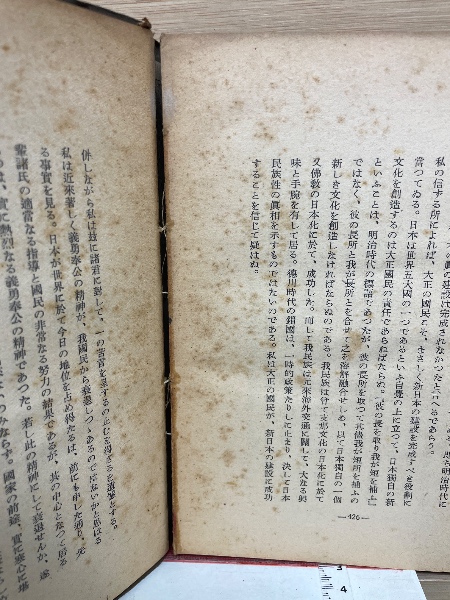 即ち明治時代に
の建設は完成されなかつたと言へるであらう。
私の信ずる所によれば、大正の國民こそ、まさしく新日本の建設を完成すべき役割に
當つてゐる。日本は世界五大國の一つであるといふ自覺の上に立つて、日本獨自の新
文化を創造するのは大正國民の責任であらねばならぬ。『彼の長を取り我が短を補ふ』
といふことは、明治時代の標語であつたが、彼の長所を取つて其儘我が短所を補ふの
ではなく、彼の長所と我が長所とを合せて之を渾然融合せしめ、以て日本獨自の一個
新しき文化を創造しなければならぬのである。我民族は曾て支那文化の日本化に於て
又佛敎の日本化に於て、成功した。而して我民族は元來海外交通に關して、大なる興
味と手腕を有して居る。德川時代の鎖國は、一時的政策たりしに止まり、決して日本
民族性の眞相を示すものではないのである。私は大正の國民が、新日本の建設に成功
することを信じて疑はぬ。
—426—
併しながら私は玆に諸君に對して、一の苦言を呈するの止むを得ざるを遺憾とする。
私は近來著しく義勇奉公の精神が、我國民から衰退しつゝあるのではないかと思はる
る事實を見る。日本が世界に於て今日の地位を占め得たるは、前にも申した通り、先
輩諸氏の適當なる指導と國民の非常なる努力の結果であるが、其の中心となつて居る
ものは、實に熱烈なる義勇奉公の精神であつた。若し此の精神にして衰退せんか、
のみならず。國家の前途、實に寒心に堪
3
4